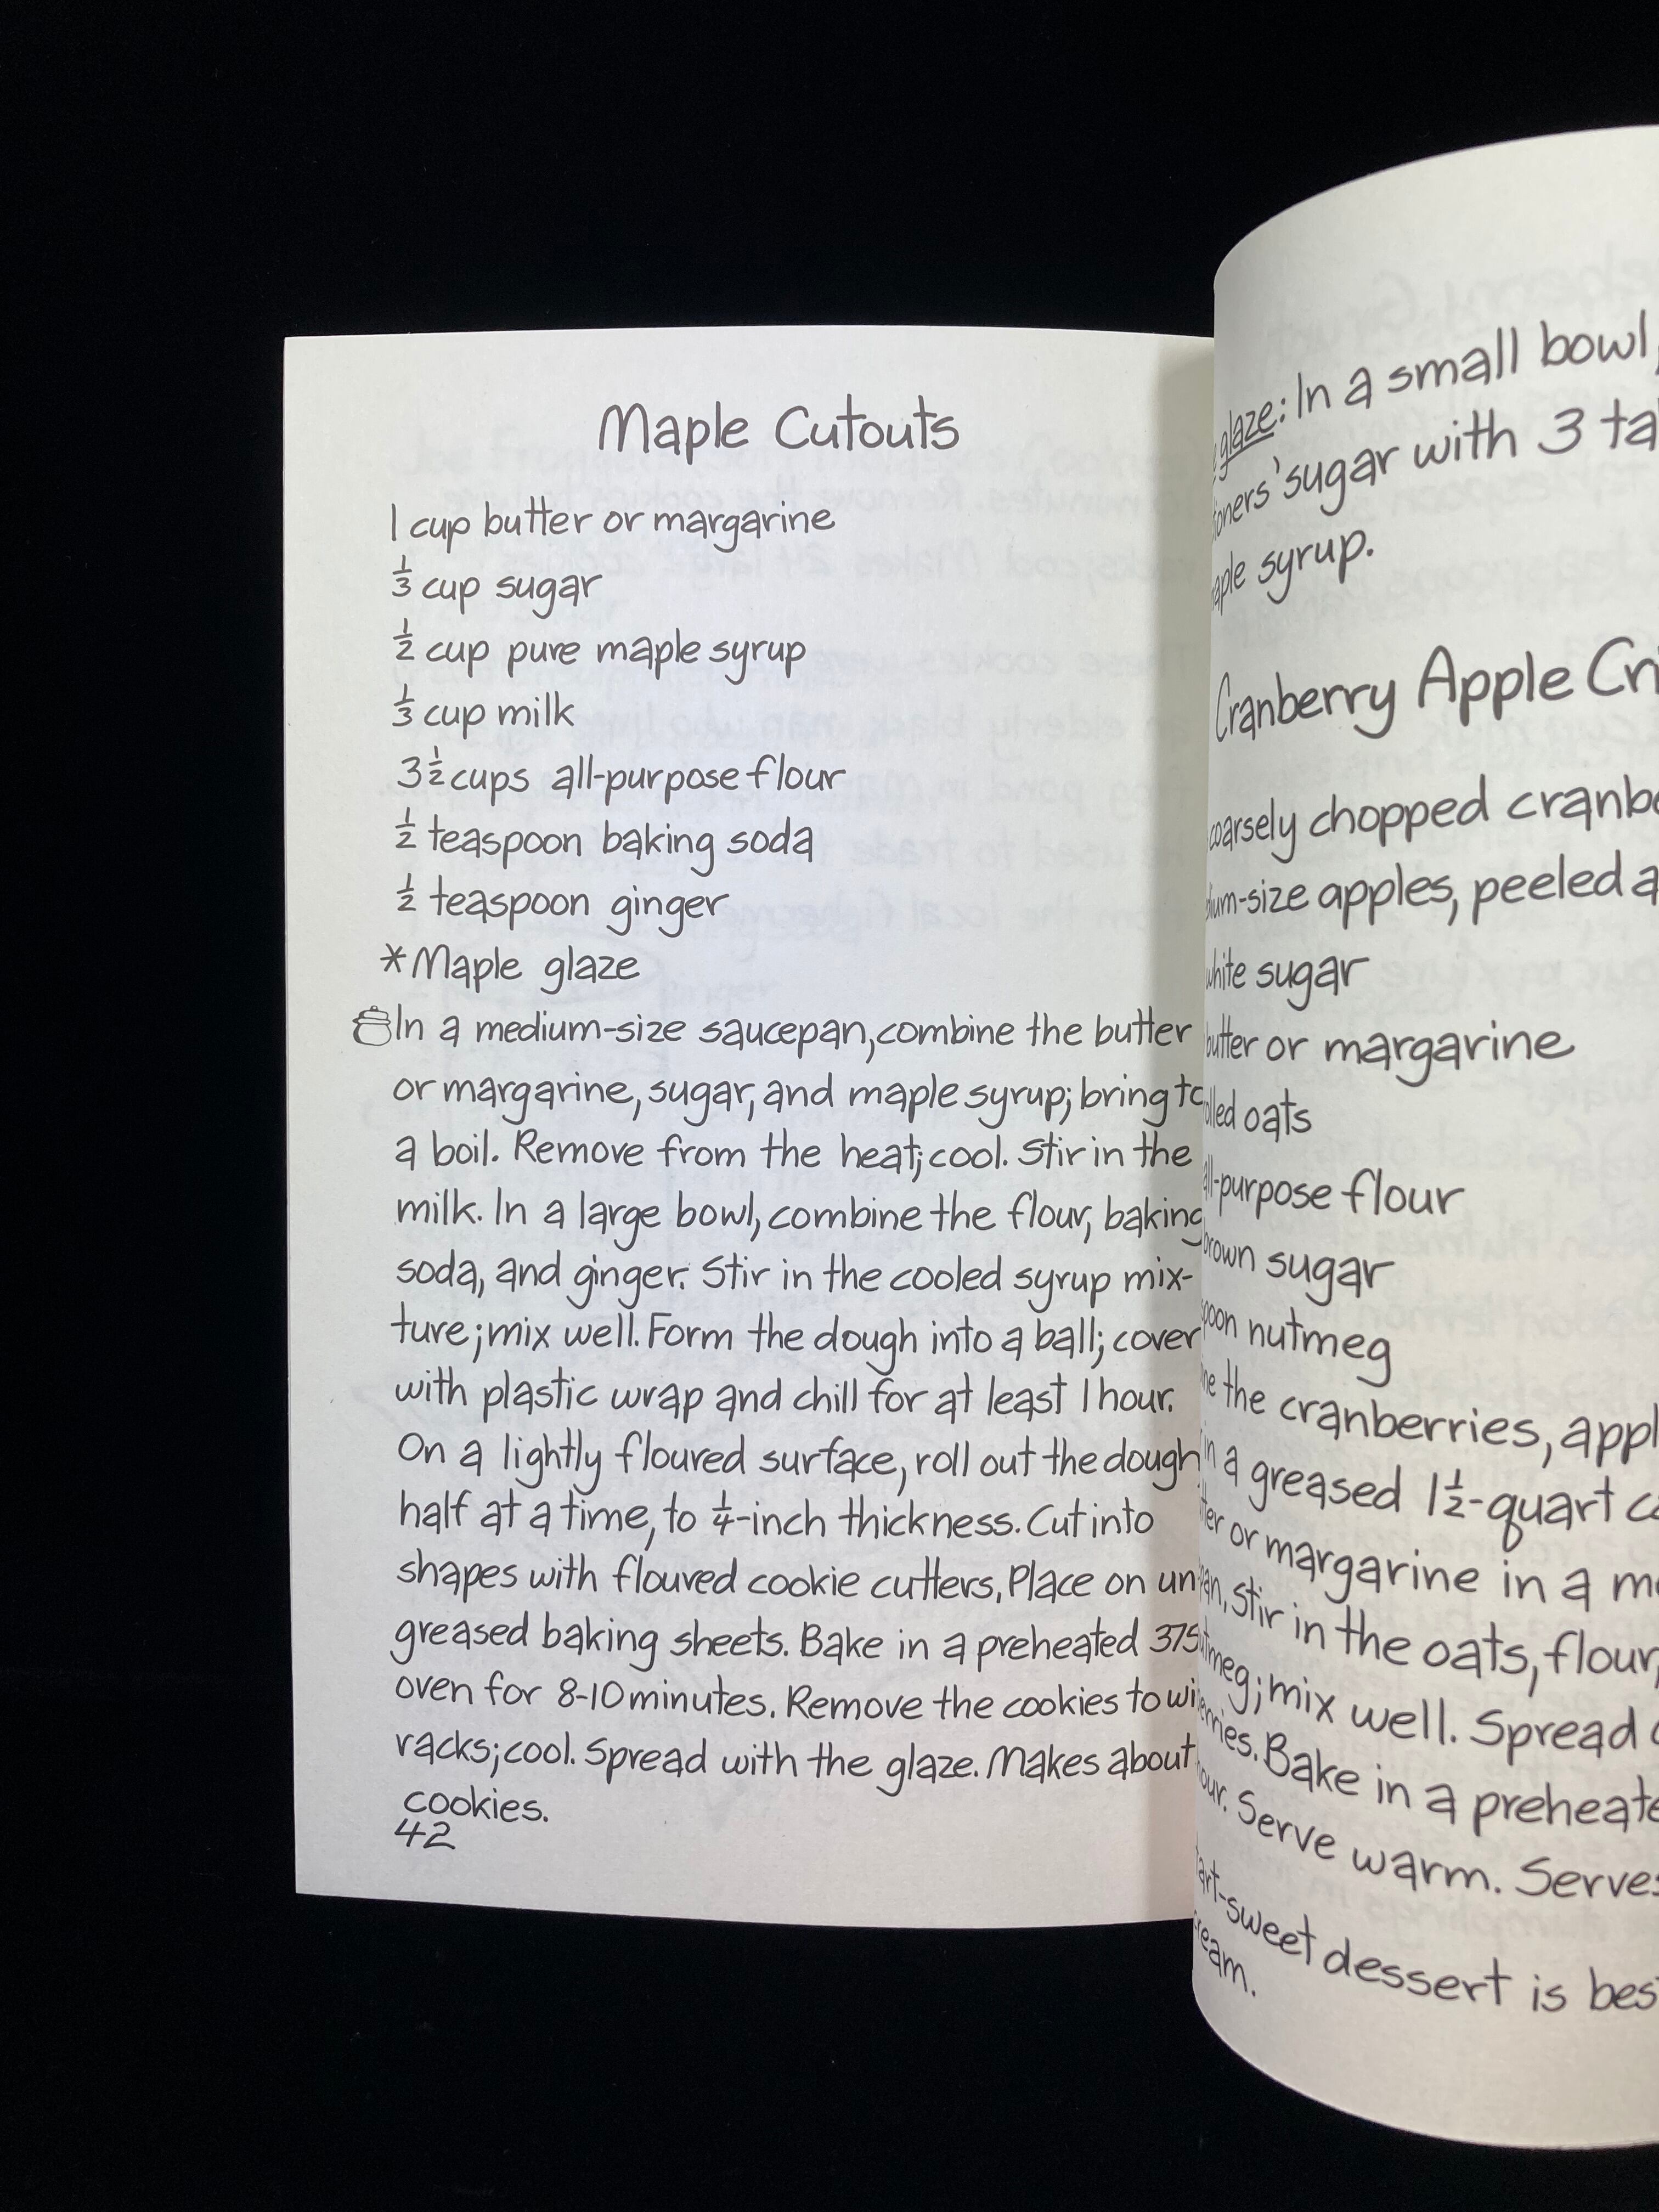 Maple Cutouts
1 cup butter or margarine
1/3 cup sugar
1/2 cup pure maple syrup
1/3 cup milk
3 1/2 cups all-purpose flour
1/2 teaspoon baking soda
1/2 teaspoon ginger
*Maple glaze
In a medium-size saucepan, combine the butter
or margarine, sugar, and maple syrup; bring to
a boil. Remove from the heat; cool. Stir in the
milk. In a large bowl, combine the flour, baking
soda, and ginger. Stir in the cooled syrup mix-
ture; mix well. Form the dough into a ball; cover
with plastic wrap and chill for at least 1 hour.
On a lightly floured surface, roll out the dough
half at a time, to 1/4-inch thickness. Cut into
shapes with floured cookie cutters. Place on un
greased baking sheets. Bake in a preheated 375
oven for 8-10 minutes. Remove the cookies to
racks; cool. Spread with the glaze. Makes about
cookies.
42
glaze: In a small bowl,
sugar with 3
syrup.
Cranberry Apple
coarsely chopped
-size apples, peeled
white sugar
butter or margarine
oats
-purpose flour
sugar
nutmeg
the cranberries,
in a greased 1 1/2-quart
or margarine in a
stir in the oats, flour,
mix well. Spread
Bake in a
Serve warm.
-sweet dessert is